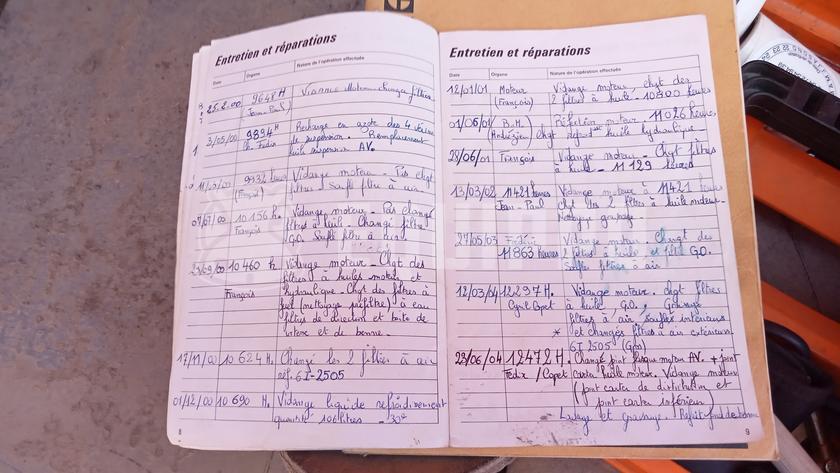 Entretien et réparations
Date Organe Nature de l'opération effectuée
25.2.00 9648 H Vidange Moteur changé filtres
(Jean Paul)
3/05/00 9894 H Recharge en azote des 4
Ch. Fedix de suspension. Remplacement
huile suspension AV.
Vidange moteur - Pas chgt
(François) filtres - Soufflé filtre à air
07/07/00 10 156 h. Vidange moteur - Pas changé
François filtres à huile - Changé filtre
G.O. Soufflé filtre à air
10 460 h Vidange moteur - Chgt des
filtres à huiles moteur et
François hydraulique - Chgt des filtres à
(nettoyage préfiltre) à eau
filtres de direction et boite de
vitesse et de benne.
17/11/00 10 624 H. Changé les 2 filtres à air
réf. 6I-2505
01/12/00 10 690 H. Vidange liquide refroidissement
quantité 106 litres - 30°
8
Entretien et réparations
Date Organe Nature de l'opération effectuée
12/01/01 Moteur Vidange moteur, chgt des
(François) 2 filtres à huile - 10800 heures
01/06/01 B.M. Réfection moteur 11026 heures
chgt huile hydraulique
28/06/01 François Vidange moteur - Chgt filtres
à huile - 11 129 heures
13/03/02 11421 heures Vidange moteur à 11421 heures
Jean-Paul chgt les 2 filtres à huile moteur.
Nettoyage
27/05/03 Frédéric Vidange moteur. Changt des
11863 heures 2 filtres à huile et filtre G.O.
Soufflé filtres à air
12/03/04 12297 H. Vidange moteur. chgt filtres
Cyril Copet à huile G.O. Graissage
filtres à air, soufflés intérieurs
* et changés filtres à air extérieurs
6I 2505 (Gds)
23/06/04 12472 H. Changé joint moteur AV. + joint
Fedix / Copet carter huile moteur. Vidange moteur
(joint carter de distribution et
joint carter inférieur)
Lavage et graissage. Refait fond de benne
9